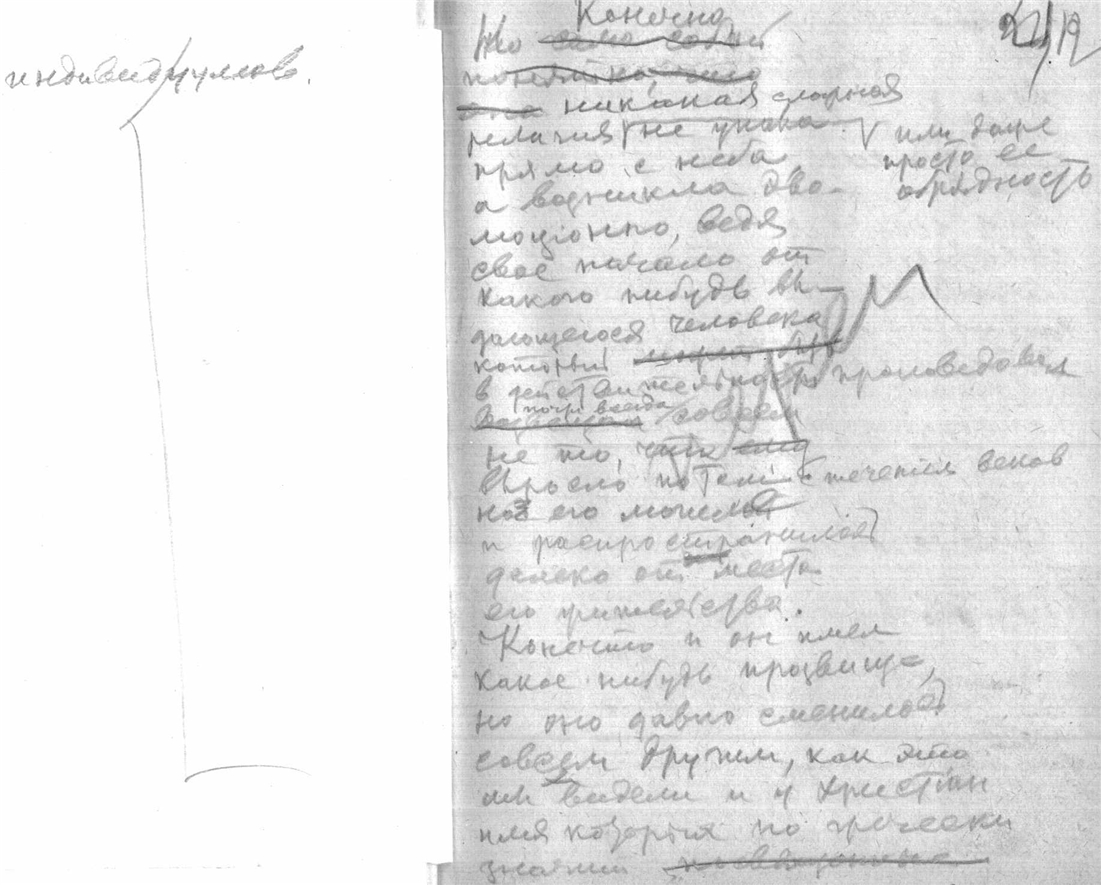 индивидуумов.
Конечно,
Но само собой
понятно, что
она никакая сложная
религия не упала
или даже
просто ее
обрядность
прямо с неба,
а возникла эво-
люционно, ведя
свое начало от
какого нибудь вы-
дающегося человека
который
в действительности проповедовал
почти всегда совсем
не то, что ему
выросло потом с течением веков
на его могиле
и распространилось
далеко от места
его жительства.
Конечно и он имел
какое нибудь прозвище,
но оно давно сменилось
совсем другим, как это
мы видели и у христиан
имя которых по гречески
значит